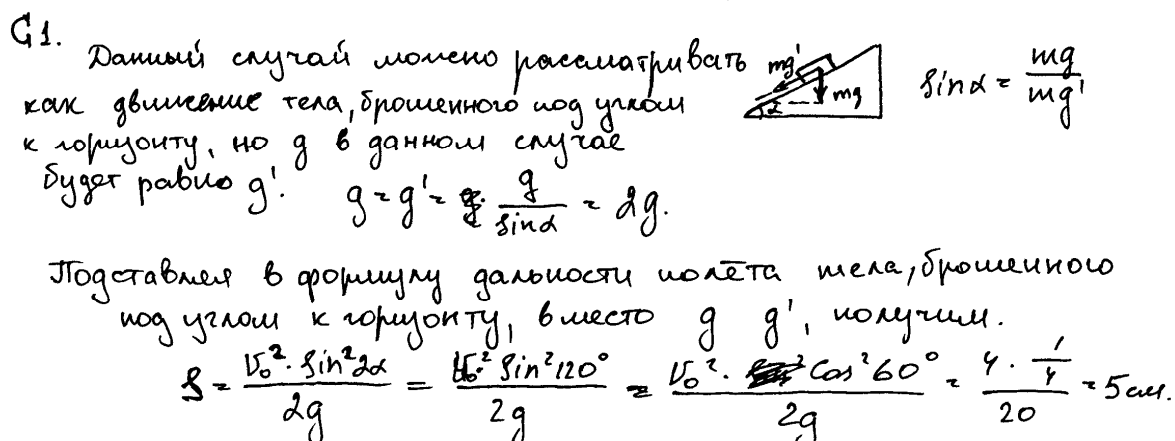 C1.
Данный случай можно рассматривать
как движение тела, брошенного под углом
к горизонту, но g в данном случае
будет равно g'. g = g' = g/sinα = 2g.
mg'
mg
α
sinα = mg/mg'
Подставляя в формулу дальности полёта тела, брошенного
под углом к горизонту, вместо g g', получим.
S = υ₀²·sin²2α/2g = υ₀² sin²120°/2g = υ₀²·cos²60°/2g = 4·1/4/20 = 5см.